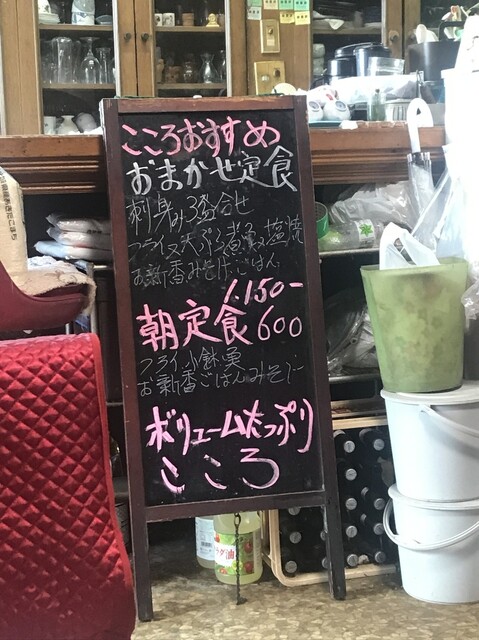 こころおすすめ
おまかせ定食
刺身み3盛合せ
フライ又天ぷら煮魚又塩焼
お新香みそ汁ごはん
1.150-
朝定食600
フライ小鉢
お新香ごはんみそ汁
ボリュームたっぷり
こころ
サラダ油